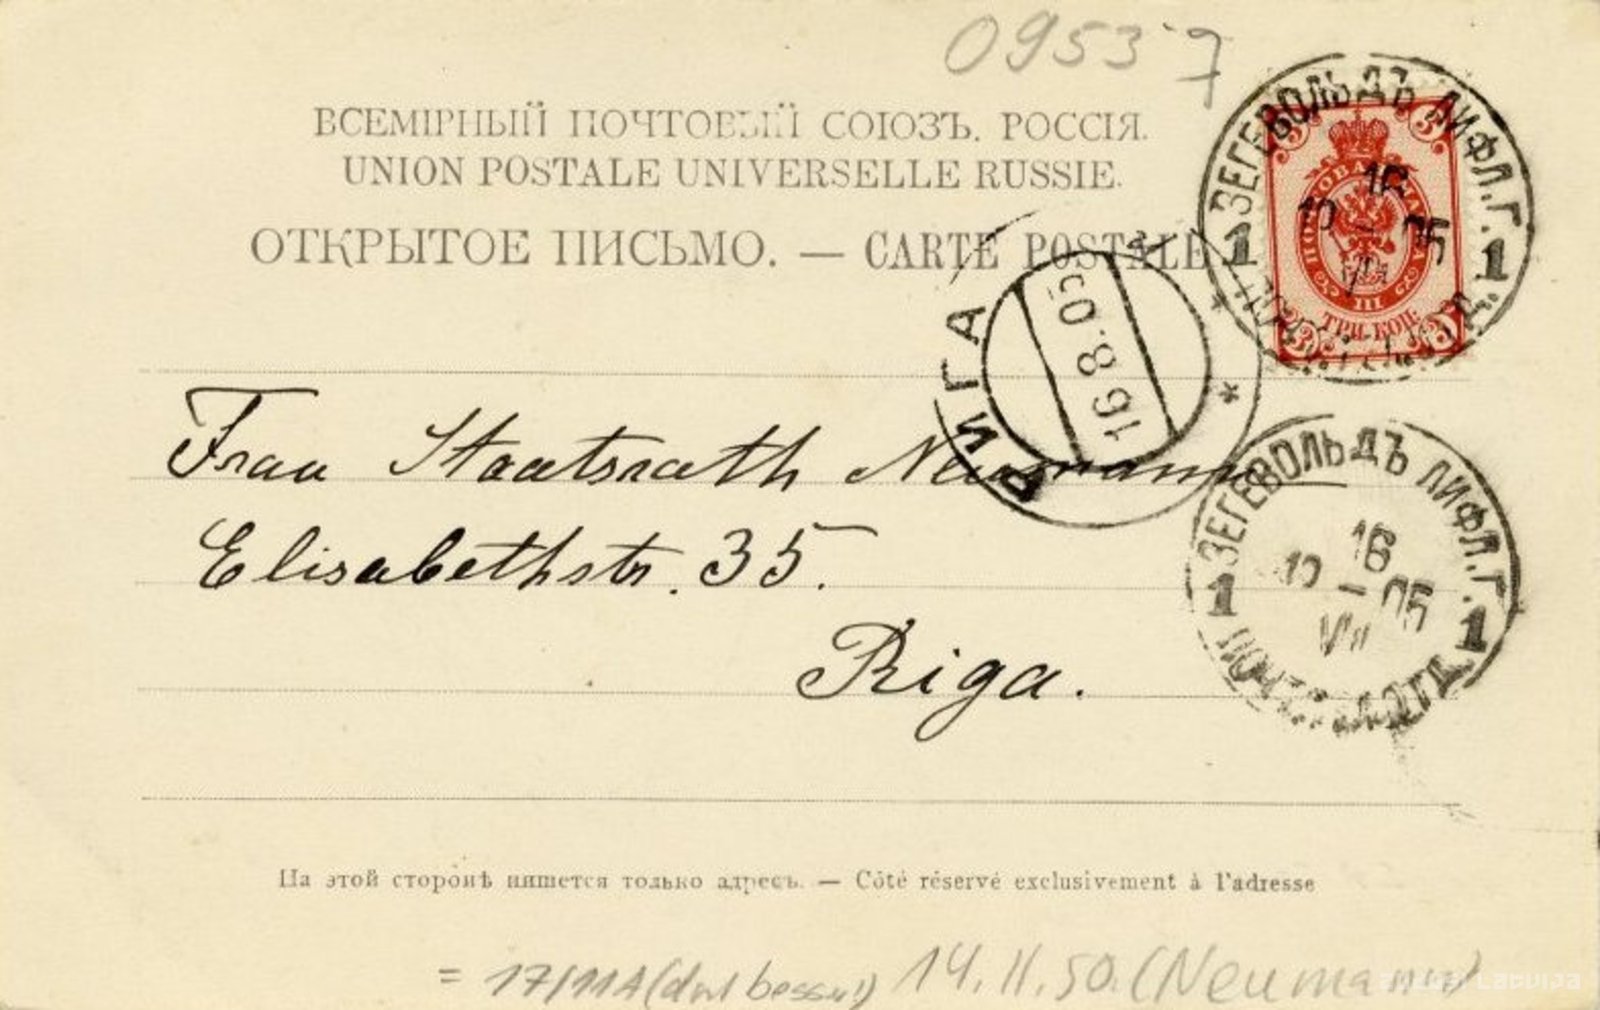 09537
ВСЕМІРНЫЙ ПОЧТОВЫЙ СОЮЗЪ. РОССІЯ.
UNION POSTALE UNIVERSELLE RUSSIE.
ОТКРЫТОЕ ПИСЬМО. — CARTE POSTALE
ЗЕГЕВОЛЬДЪ ЛИФЛ.Г.
1 1
16
10 - 05
VIII
ТРИ КОП.
III
3 3 3 3
РИГА
16.8.05
Frau Staatsrath Neumann
Elisabethstr. 35.
Riga.
ЗЕГЕВОЛЬДЪ ЛИФЛ.Г.
1 1
16
10 - 05
VIII
На этой сторонѣ пишется только адресъ. — Côté réservé exclusivement à l'adresse
= 17/11A (dort besser!) 14.II.50. (Neumann)